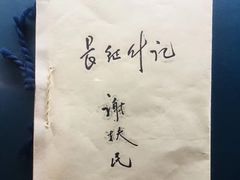 长征外记
谢扶民